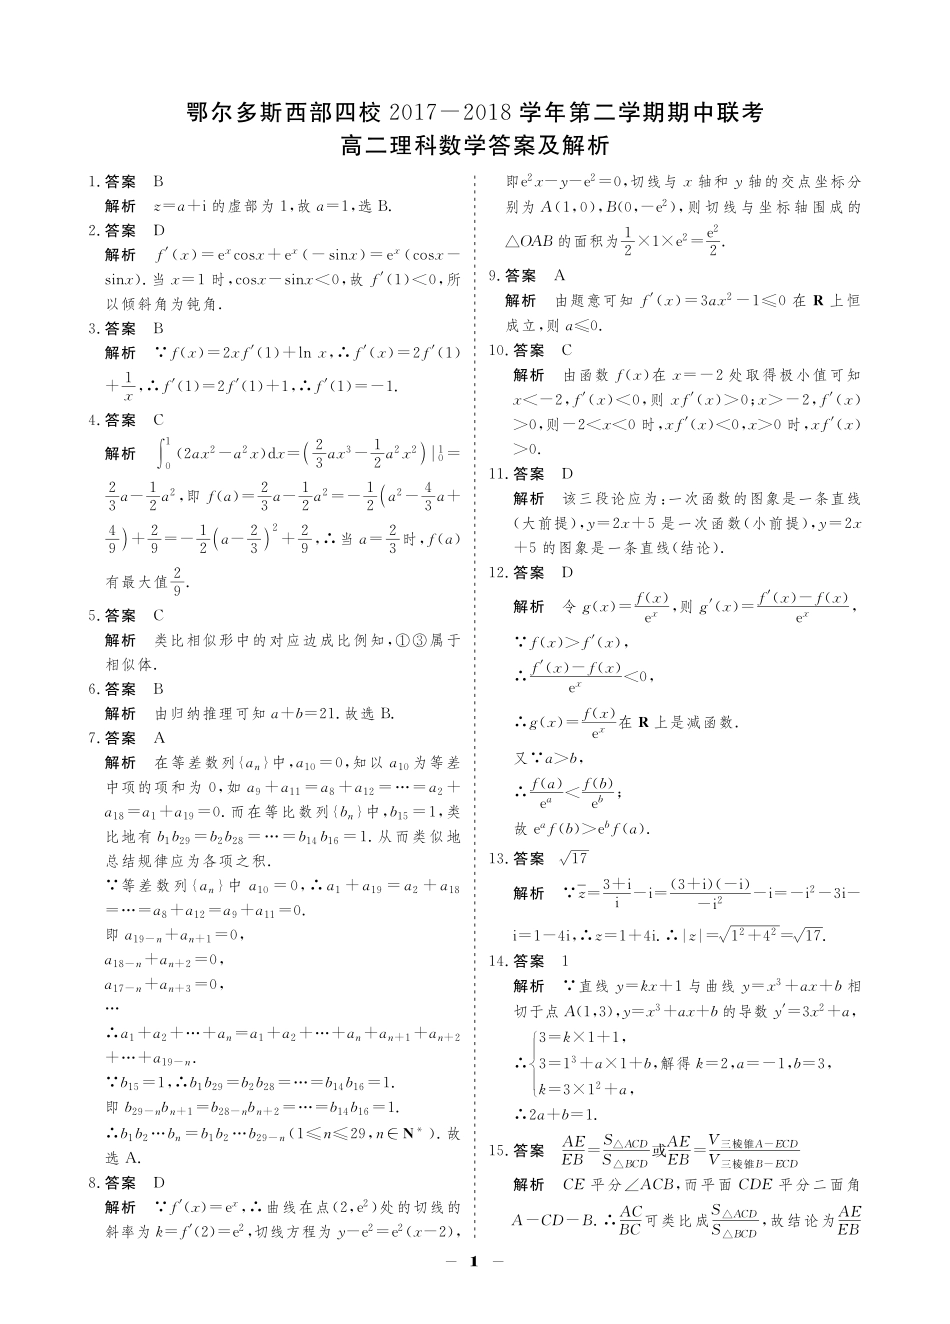 鄂尔多斯西部四校 2017－2018 学年第二学期期中联考
高二理科数学答案及解析
1. 答案 B
解析 z=a+i 的虚部为 1,故 a=1,选 B.
2. 答案 D
解析 f′(x)=eˣcosx+eˣ(－sinx)=eˣ(cosx－
sinx).当 x=1 时,cosx－sinx<0,故 f′(1)<0,所
以倾斜角为钝角.
3. 答案 B
解析 ∵f(x)=2xf′(1)+ln x,∴f′(x)=2f′(1)
+1/x,∴f′(1)=2f′(1)+1,∴f′(1)=－1.
4. 答案 C
解析 ∫₀¹(2ax²－a²x)dx=(2/3 ax³－1/2 a²x²)|₀¹=
2/3 a－1/2 a²,即 f(a)=2/3 a－1/2 a²=－1/2(a²－4/3 a+
4/9)+2/9=－1/2(a－2/3)²+2/9,∴当 a=2/3 时,f(a)
有最大值 2/9.
5. 答案 C
解析 类比相似形中的对应边成比例知,①③属于
相似体.
6. 答案 B
解析 由归纳推理可知 a+b=21.故选 B.
7. 答案 A
解析 在等差数列{aₙ}中,a₁₀=0,知以 a₁₀ 为等差
中项的项和为 0,如 a₉+a₁₁=a₈+a₁₂=…=a₂+
a₁₈=a₁+a₁₉=0.而在等比数列{bₙ}中,b₁₅=1,类
比地有 b₁b₂₉=b₂b₂₈=…=b₁₄b₁₆=1.从而类似地
总结规律应为各项之积.
∵等差数列{aₙ}中 a₁₀=0,∴a₁+a₁₉=a₂+a₁₈
=…=a₈+a₁₂=a₉+a₁₁=0.
即 a₁₉₋ₙ+aₙ₊₁=0,
a₁₈₋ₙ+aₙ₊₂=0,
a₁₇₋ₙ+aₙ₊₃=0,
…
∴a₁+a₂+…+aₙ=a₁+a₂+…+aₙ+aₙ₊₁+aₙ₊₂
+…+a₁₉₋ₙ.
∵b₁₅=1,∴b₁b₂₉=b₂b₂₈=…=b₁₄b₁₆=1.
即 b₂₉₋ₙbₙ₊₁=b₂₈₋ₙbₙ₊₂=…=b₁₄b₁₆=1.
∴b₁b₂…bₙ=b₁b₂…b₂₉₋ₙ(1≤n≤29,n∈N*).故
选 A.
8. 答案 D
解析 ∵f′(x)=eˣ,∴曲线在点(2,e²)处的切线的
斜率为 k=f′(2)=e²,切线方程为 y－e²=e²(x－2),
即e²x－y－e²=0,切线与 x 轴和 y 轴的交点坐标分
别为 A(1,0),B(0,－e²),则切线与坐标轴围成的
△OAB 的面积为 1/2×1×e²=e²/2.
9. 答案 A
解析 由题意可知 f′(x)=3ax²－1≤0 在 R 上恒
成立,则 a≤0.
10. 答案 C
解析 由函数 f(x)在 x=－2 处取得极小值可知
x<－2,f′(x)<0,则 xf′(x)>0;x>－2,f′(x)
>0,则－2<x<0 时,xf′(x)<0,x>0 时,xf′(x)
>0.
11. 答案 D
解析 该三段论应为:一次函数的图象是一条直线
(大前提),y=2x+5 是一次函数(小前提),y=2x
+5 的图象是一条直线(结论).
12. 答案 D
解析 令 g(x)=f(x)/eˣ,则 g′(x)=(f′(x)－f(x))/eˣ,
∵f(x)>f′(x),
∴(f′(x)－f(x))/eˣ<0,
∴g(x)=f(x)/eˣ 在 R 上是减函数.
又∵a>b,
∴f(a)/eᵃ<f(b)/eᵇ;
故 eᵃf(b)>eᵇf(a).
13. 答案 √17
解析 ∵z̄=(3+i)/i－i=(3+i)(－i)/(－i²)－i=－i²－3i－
i=1－4i,∴z=1+4i.∴|z|=√(1²+4²)=√17.
14. 答案 1
解析 ∵直线 y=kx+1 与曲线 y=x³+ax+b 相
切于点 A(1,3),y=x³+ax+b 的导数 y′=3x²+a,
3=k×1+1,
∴{3=1³+a×1+b,解得 k=2,a=－1,b=3,
k=3×1²+a,
∴2a+b=1.
15. 答案 AE/EB=S△ACD/S△BCD 或 AE/EB=V三棱锥A－ECD/V三棱锥B－ECD
解析 CE 平分∠ACB,而平面 CDE 平分二面角
A－CD－B.∴AC/BC 可类比成 S△ACD/S△BCD,故结论为 AE/EB
－ 1 －